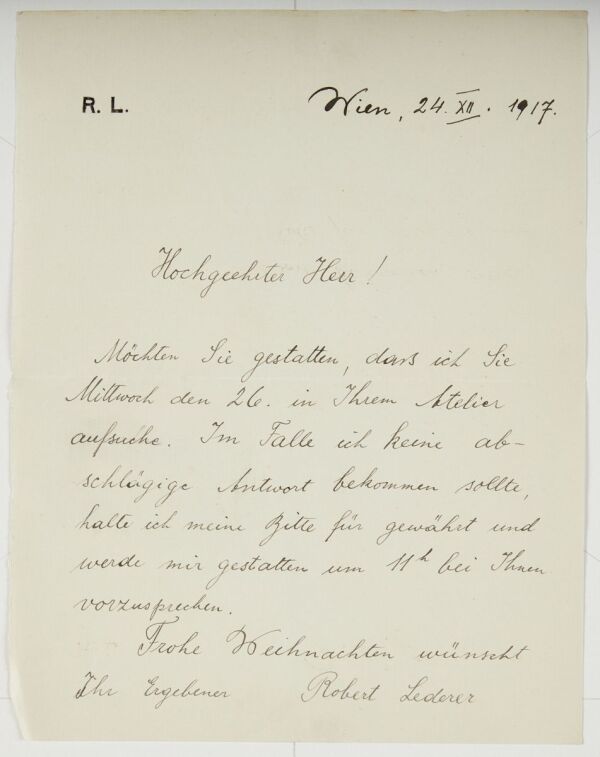 R. L.
Wien, 24. XII. 1917.
Hochgeehrter Herr!
Möchten Sie gestatten, dass ich Sie
Mittwoch den 26. in Ihrem Atelier
aufsuche. Im Falle ich keine ab-
schlägige Antwort bekommen sollte,
halte ich meine Bitte für gewährt und
werde mir gestatten um 11h bei Ihnen
vorzusprechen.
Frohe Weihnachten wünscht
Ihr Ergebener Robert Lederer